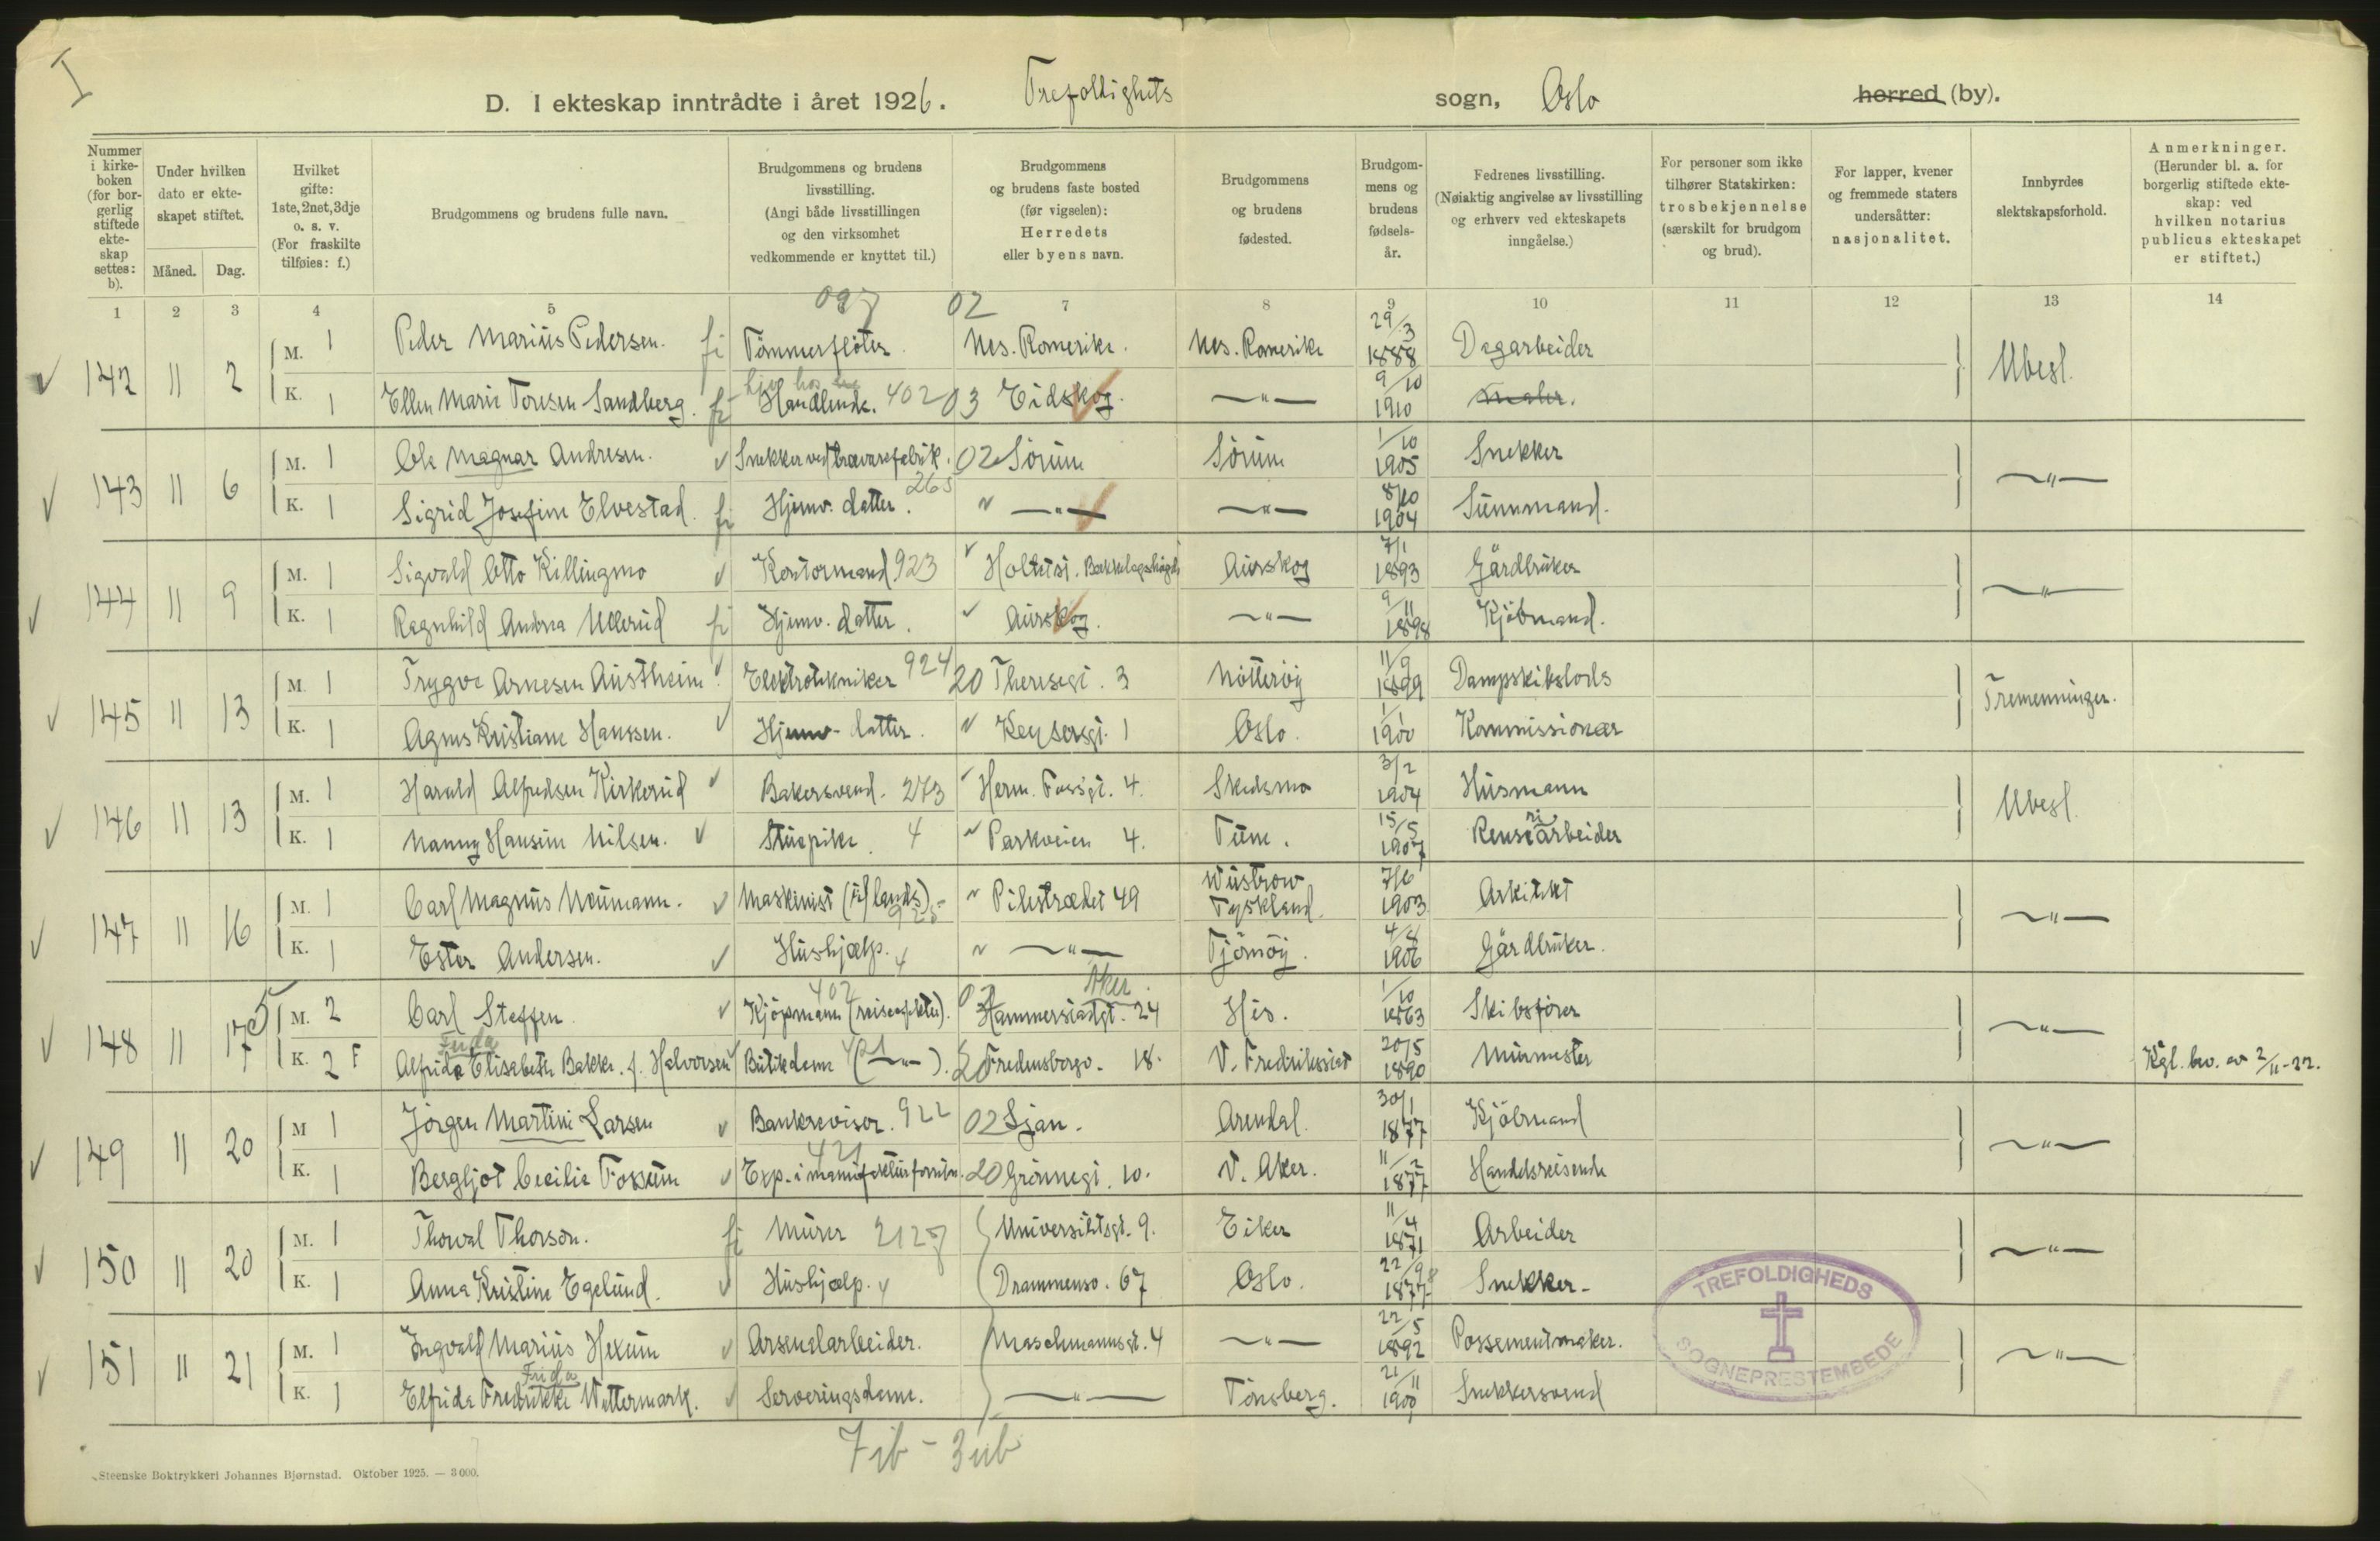 I
D. I ekteskap inntrådte i året 1926. Trefoldighets sogn, Oslo herred (by).
Nummer i kirkeboken (for borgerlig stiftede ekteskap settes: b).
Under hvilken dato er ekteskapet stiftet.
Måned. Dag.
Hvilket gifte: 1ste, 2net, 3dje o. s. v. (For fraskilte tilføies: f.)
Brudgommens og brudens fulle navn.
Brudgommens og brudens livsstilling. (Angi både livsstillingen og den virksomhet vedkommende er knyttet til.)
Brudgommens og brudens faste bosted (før vigselen): Herredets eller byens navn.
Brudgommens og brudens fødested.
Brudgommens og brudens fødselsår.
Fedrenes livsstilling. (Nøiaktig angivelse av livsstilling og erhverv ved ekteskapets inngåelse.)
For personer som ikke tilhører Statskirken: trosbekjennelse (særskilt for brudgom og brud).
For lapper, kvener og fremmede staters undersåtter: nasjonalitet.
Innbyrdes slektskapsforhold.
Anmerkninger. (Herunder bl. a. for borgerlig stiftede ekteskap: ved hvilken notarius publicus ekteskapet er stiftet.)
1 2 3 4 5 7 8 9 10 11 12 13 14
097 02
142 11 2 M. 1 Peder Marius Pedersen. fi Tömmerflöter. Nes. Romerike. Nes. Romerike 29/3 1888 Dagarbeider Ubesl.
K. 1 Ellen Marie Toresen Sandberg. fi Handlende. 402 03 Eidskog. —"— 9/10 1910 Maler.
143 11 6 M. 1 Ole Magnar Andresen. Snekker ved trævarefabrik. 02 Sörum Sörum 1/10 1905 Snekker —"—
K. 1 Sigrid Josefine Elvestad. fi Hjemv. datter. 265 —"— —"— 8/10 1904 Sünnmand.
144 11 9 M. 1 Sigvald Otto Killingmo Kontormand 923 Holtetst. Bekkelagshøgda Aurskog 7/1 1893 Gårdbruker —"—
K. 1 Ragnhild Andrea Ullerud fi Hjemv. datter. Aurskog. —"— 9/11 1898 Kjöbmand.
145 11 13 M. 1 Trygve Arnesen Austheim Elektrotekniker 924 20 Theresegt. 3 Nötteröy 11/9 1899 Dampskibslods Tremenninger.
K. 1 Agnes Kristiane Hanssen. Hjemv. datter. Keysersgt. 1 Oslo. 1/1 1900 Kommissionær
146 11 13 M. 1 Harald Alfredsen Kirkerud Bakersvend. 273 Herm. Fossgt. 4. Skedsmo 3/2 1904 Husmann Ubesl.
K. 1 Nanny Hansine Nilsen. Stuepike. 4 Parkveien 4. Tune. 15/5 1907 Renseriarbeider
147 11 16 M. 1 Carl Magnus Neumann. Maskinist (utlands) 925 Pilestrædet 49 Wustrow Tyskland. 7/6 1903 Arkitekt —"—
K. 1 Ester Andersen. Hushjælp. 4 —"— Tjömöy. 4/8 1906 Gårdbruker.
148 11 17 M. 2 Carl Steffen Kjöpmann (reiseeffekter). 402 Hammerstadgt. 24 Aker. His. 1/10 1863 Skibsförer —"—
K. 2 F Alfrida Elisabeth Bakke. f. Halvorsen Frida Butikdame (—"—). 421 20 Fredensborgv. 18. V. Fredrikstad 20/5 1890 Murmester Kgl. bev. av 2/11-22.
149 11 20 M 1 Jörgen Martini Larsen Bankrevisor. 922 02 Ljan. Arendal. 30/1 1877 Kjöbmand —"—
K. 1 Bergljot Cecilie Fossum Exp. i manufakturforretn. 421 20 Grönnegt. 10. V. Aker. 11/2 1877 Handelsreisende
150 11 20 M. 1 Thorval Thorson. fi Murer 2127 Universitetsgt. 9. Eiker 11/4 1871 Arbeider —"—
K. 1 Anna Kristine Egelund. Hushjælp. 4 Drammensv. 67 Oslo. 22/9 1877 Snekker.
151 11 21 M. 1 Ingvald Marius Hexum Arsenalarbeider. Maschmannsgt. 4 —"— 22/5 1892 Possementmaker. —"—
K. 1 Elfrida Fredrikke Wettermark. Frida Serveringsdame. —"— Tönsberg. 21/11 1900 Snekkersvend
TREFOLDIGHEDS SOGNEPRESTEMBEDE
7 ib - 3 ub
Steenske Boktrykkeri Johannes Bjørnstad. Oktober 1925. — 3 000.